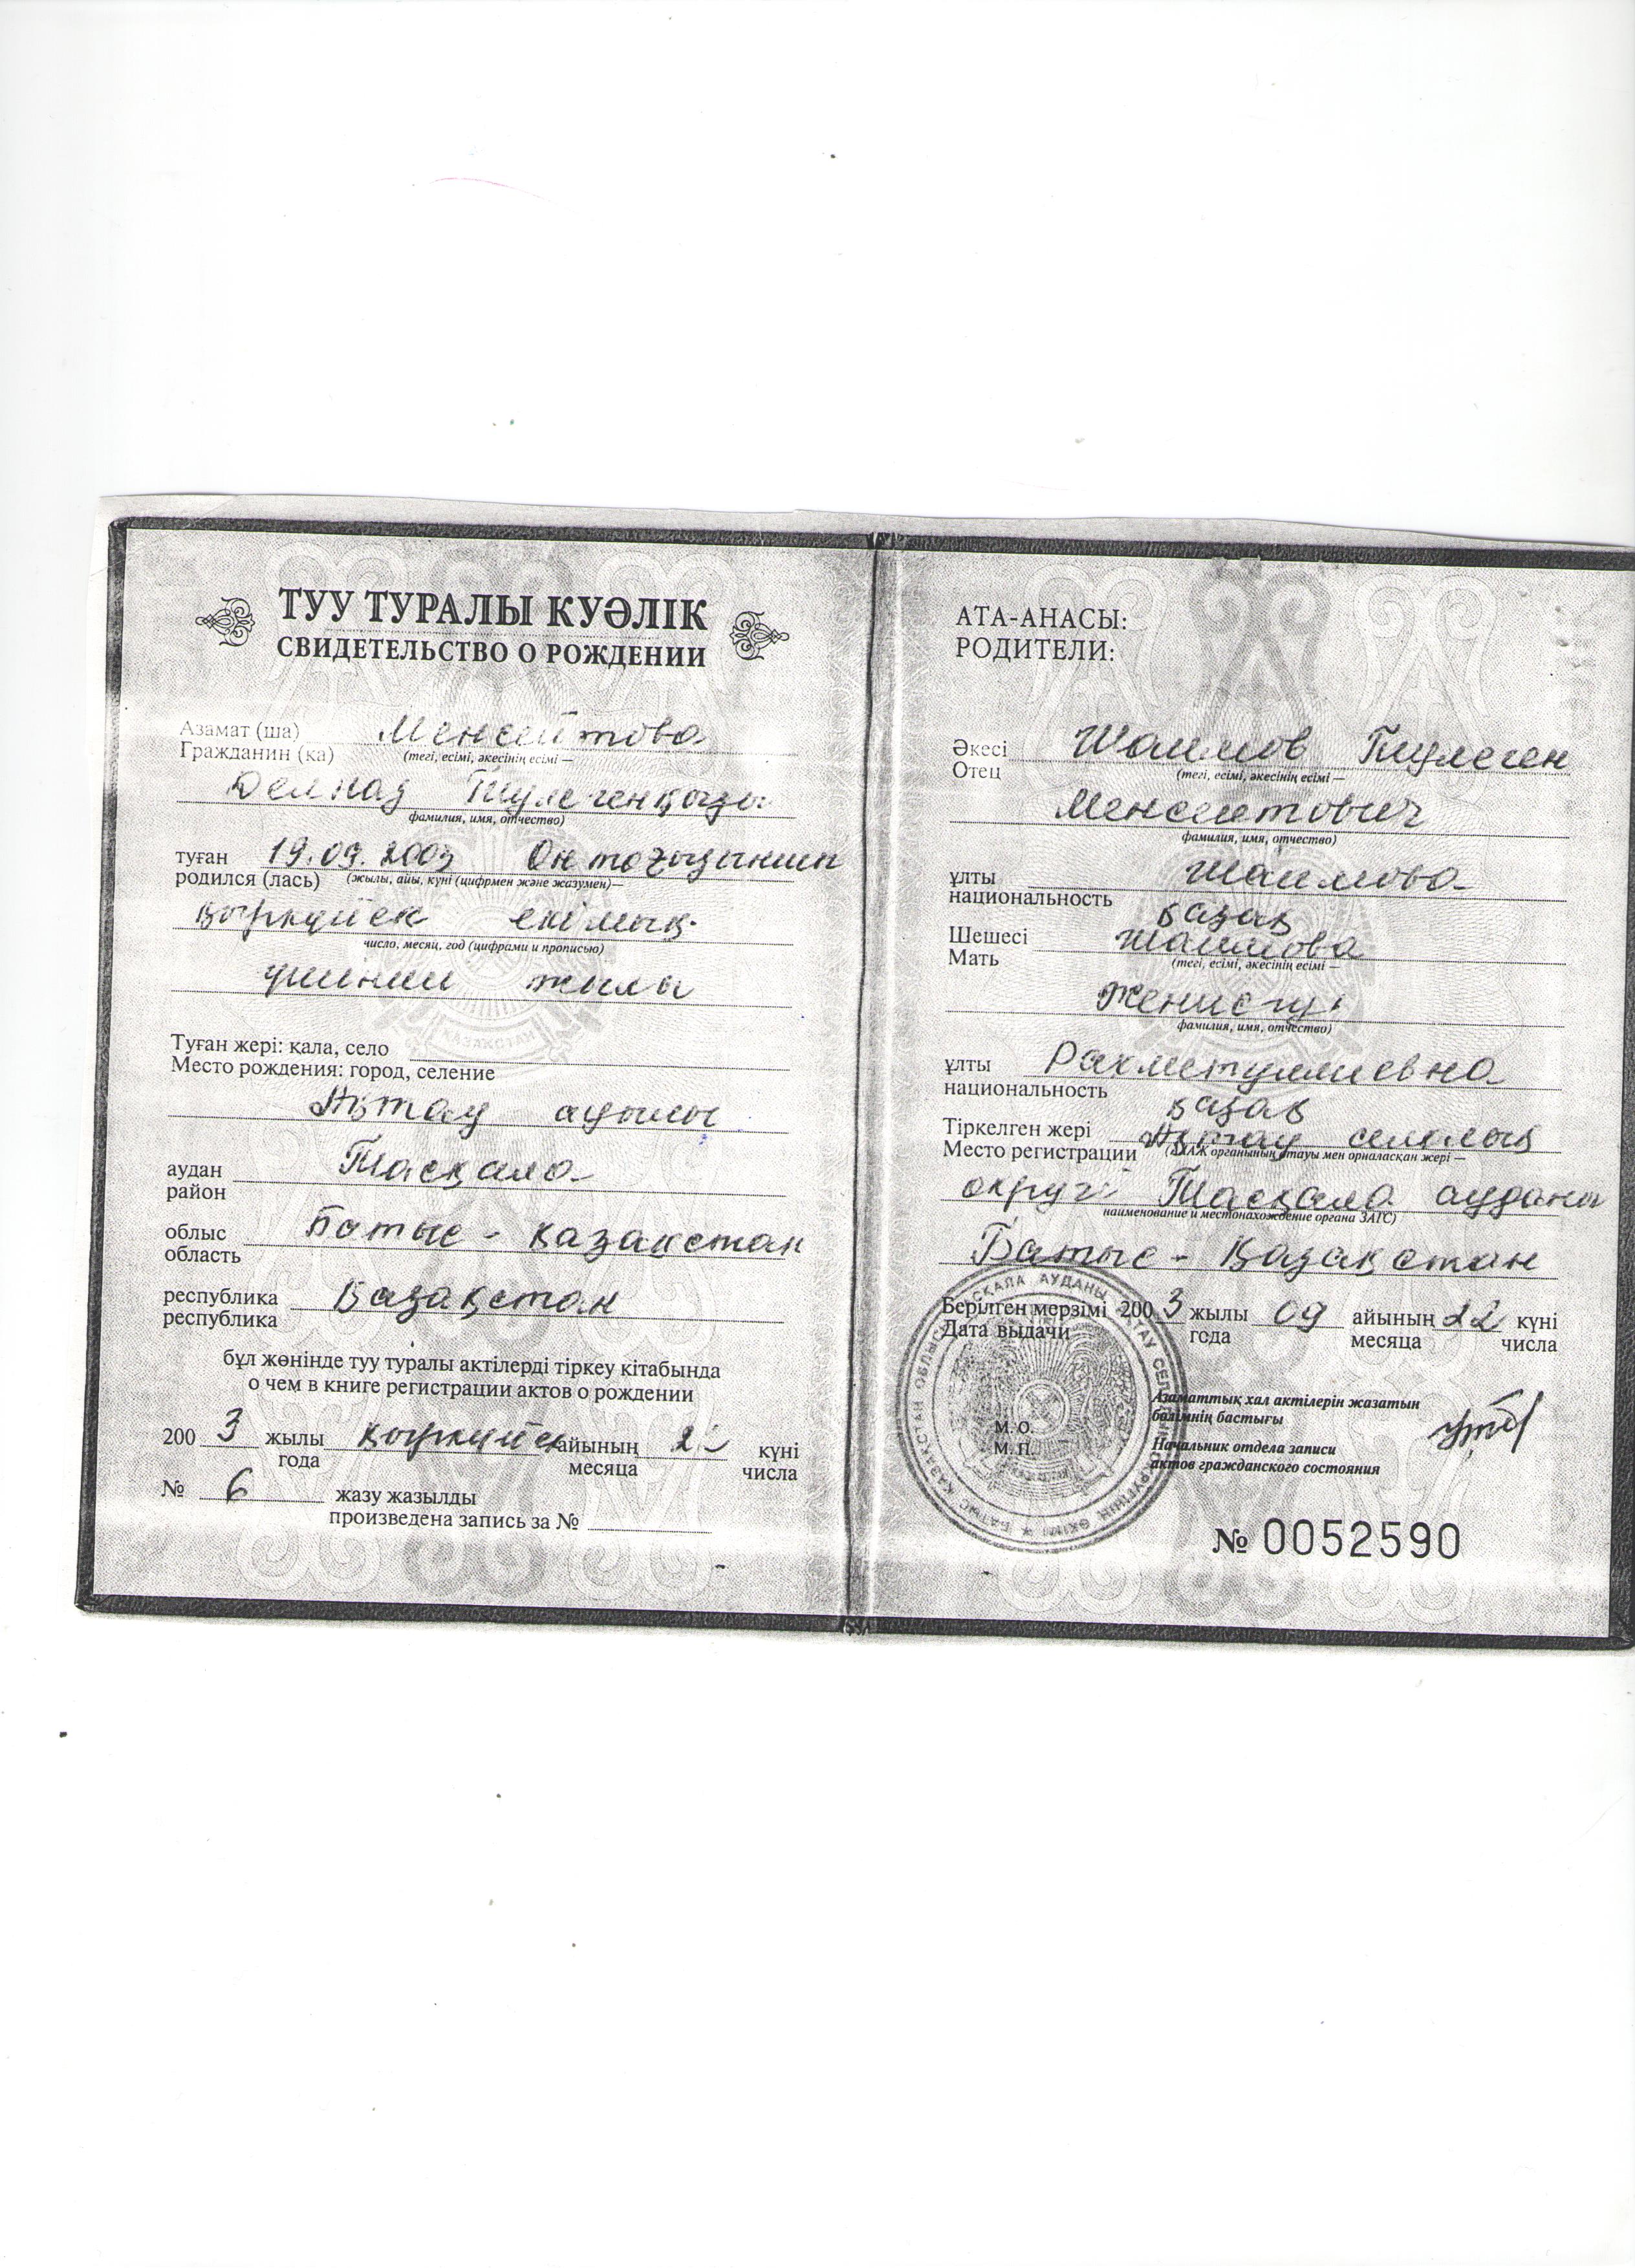 ТУУ ТУРАЛЫ КУӘЛІК
СВИДЕТЕЛЬСТВО О РОЖДЕНИИ
Азамат (ша) Менсейтова
Гражданин (ка) (тегі, есімі, әкесінің есімі —
Делназ Тулегенқызы
фамилия, имя, отчество)
туған 19.09.2003 Он тоғызыншы
родился (лась) (жылы, айы, күні (цифрмен және жазумен)—
қыркүйек екі мың
число, месяц, год (цифрами и прописью)
үшінші жылы
Туған жері: қала, село
Место рождения: город, селение
Ақтау ауылы
аудан Тасқала
район
облыс Батыс - Қазақстан
область
республика Қазақстан
республика
бұл жөнінде туу туралы актілерді тіркеу кітабында
о чем в книге регистрации актов о рождении
200 3 жылы қыркүйек айының күні
года месяца числа
№ 6 жазу жазылды
произведена запись за №
АТА-АНАСЫ:
РОДИТЕЛИ:
Әкесі Шаимов Тулеген
Отец (тегі, есімі, әкесінің есімі —
Менсеитович
фамилия, имя, отчество)
ұлты Шаимова
национальность қазақ
Шешесі Шаимова
Мать (тегі, есімі, әкесінің есімі —
Женисгуль
фамилия, имя, отчество)
ұлты Рахметуллиевна
национальность қазақ
Тіркелген жері Ақтау селолық
Место регистрации (АХАЖ органының атауы мен орналасқан жері —
округі Тасқала ауданы
наименование и местонахождение органа ЗАГС)
Батыс - Қазақстан
Берілген мерзімі 200 3 жылы 09 айының 22 күні
Дата выдачи года месяца числа
Азаматтық хал актілерін жазатын
бөлімнің бастығы
М. О.
М. П.
Начальник отдела записи
актов гражданского состояния
№ 0052590